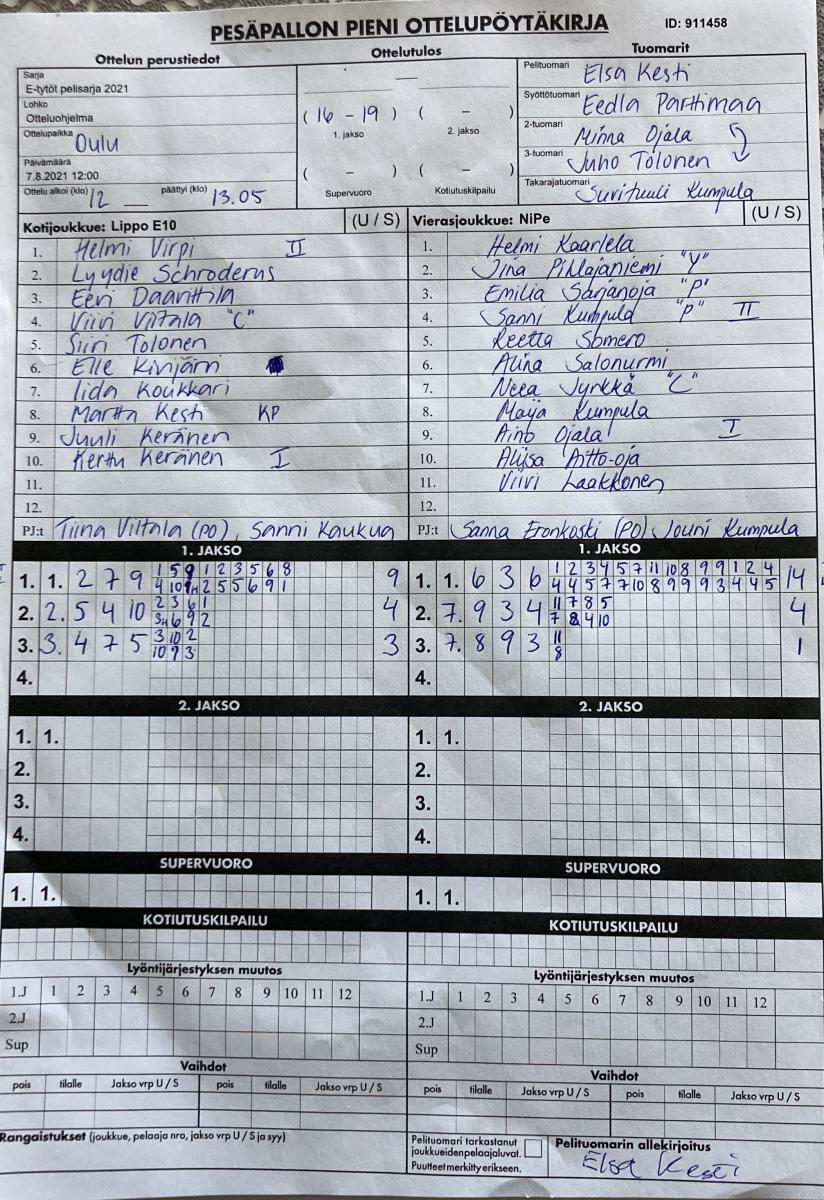 PESÄPALLON PIENI OTTELUPÖYTÄKIRJA
ID: 911458
Ottelun perustiedot
Sarja
E-tytöt pelisarja 2021
Lohko
Otteluohjelma
Ottelupaikka Oulu
Päivämäärä
7.8.2021 12:00
Ottelu alkoi (klo) 12 päättyi (klo) 13.05
Ottelutulos
( 16 - 19 ) ( - )
1. jakso 2. jakso
( - ) ( - )
Supervuoro Kotiutuskilpailu
Tuomarit
Pelituomari Elsa Kesti
Syöttötuomari Eedla Parttimaa
2-tuomari Minna Ojala
3-tuomari Juho Tolonen
Takarajatuomari Suvituuli Kumpula
Kotijoukkue: Lippo E10 (U / S)
1. Helmi Virpi II
2. Lyydie Schroderus
3. Eeri Daanttila
4. Viivi Viitala "C"
5. Siiri Tolonen
6. Elle Kinjärri
7. Iida Koukkari
8. Martta Kesti KP
9. Juuli Keränen
10. Kerttu Keränen I
11.
12.
PJ:t Tiina Viitala (PO), Sanni Kaukua
Vierasjoukkue: NiPe (U / S)
1. Helmi Kaarlela
2. Iina Pihlajaniemi "Y"
3. Emilia Sarjanoja "P"
4. Sanni Kumpula "P" II
5. Reetta Somero
6. Alina Salonurmi
7. Neea Jyrkkä "C"
8. Maija Kumpula
9. Aino Ojala I
10. Aliisa Aitto-oja
11. Viivi Laakkonen
12.
PJ:t Sanna Eronkoski (PO) Jouni Kumpula
1. JAKSO
1. 1. 2 7 9 1 5 9 1 2 3 5 6 8 9
4 10 2 5 5 6 9 1
2. 2. 5 4 10 2 3 6 1 4
6 9 2
3. 3. 4 7 5 3 10 2 3
10 9 3
4.
1. JAKSO
1. 1. 6 3 6 1 2 3 4 5 7 11 10 8 9 9 1 2 4 14
4 4 5 7 7 10 8 9 9 9 3 4 4 5
2. 7. 9 3 4 11 7 8 5 4
7 8 4 10
3. 7. 8 9 3 11 1
8
4.
2. JAKSO
1. 1.
2.
3.
4.
2. JAKSO
1. 1.
2.
3.
4.
SUPERVUORO
1. 1.
SUPERVUORO
1. 1.
KOTIUTUSKILPAILU
KOTIUTUSKILPAILU
Lyöntijärjestyksen muutos
1.J 1 2 3 4 5 6 7 8 9 10 11 12
2.J
Sup
Lyöntijärjestyksen muutos
1.J 1 2 3 4 5 6 7 8 9 10 11 12
2.J
Sup
Vaihdot
pois tilalle Jakso vrp U / S pois tilalle Jakso vrp U / S
Vaihdot
pois tilalle Jakso vrp U / S pois tilalle Jakso vrp U / S
Rangaistukset (joukkue, pelaaja nro, jakso vrp U / S ja syy)
Pelituomari tarkastanut
joukkueidenpelaajaluvat.
Puutteet merkitty erikseen.
Pelituomarin allekirjoitus
Elsa Kesti